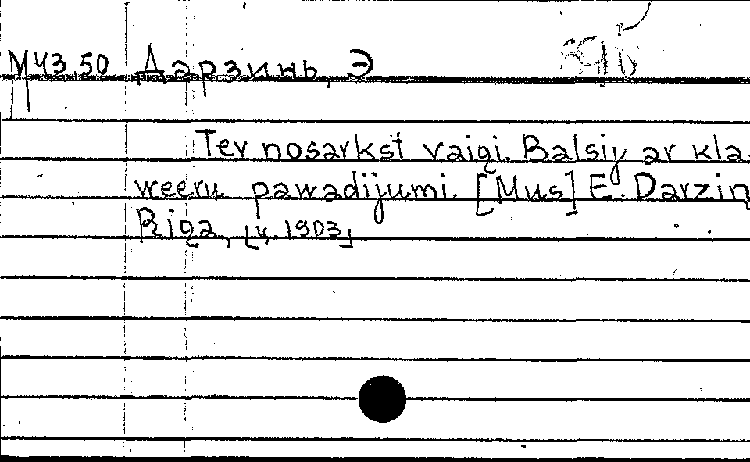 М43.50 Дарзинь, Э
Tev nosarkst vaigi. Balsij ar kla-
weeru pawadijumi. [Mus] E. Darzin
Riga, [ц. 1903]